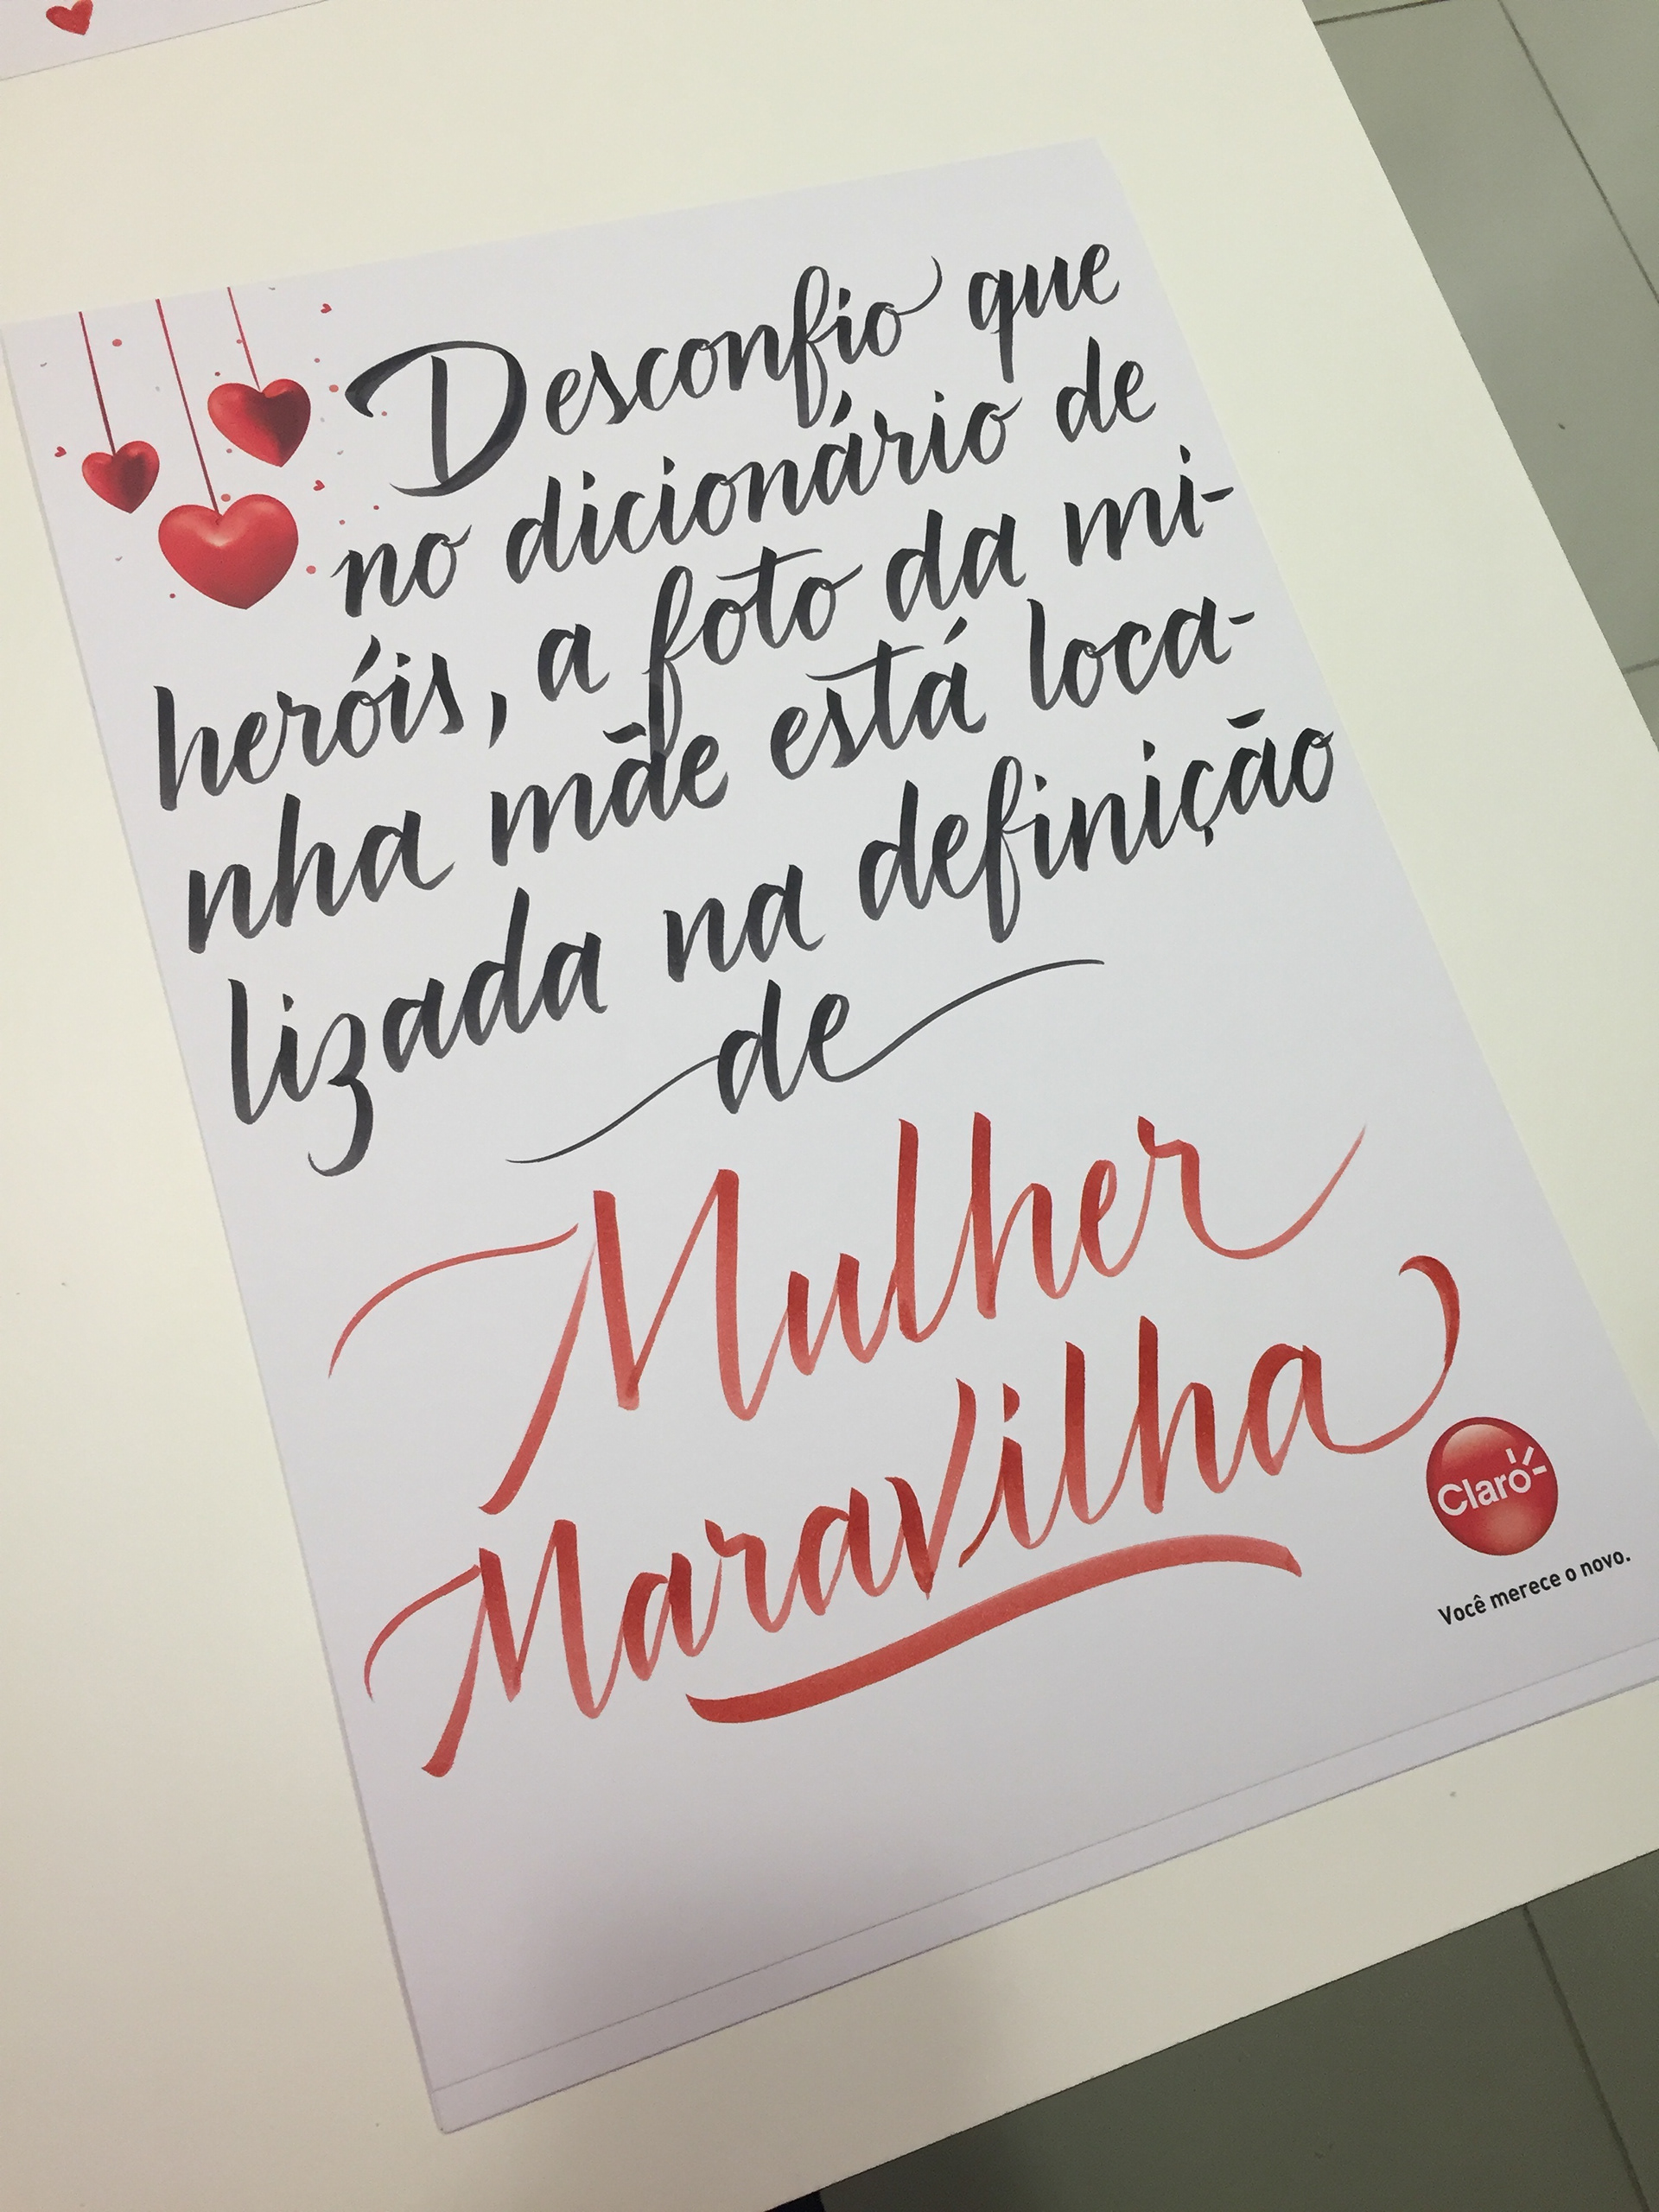 Desconfio que
no dicionário de
heróis, a foto da mi-
nha mãe está loca-
lizada na definição
de
Mulher
Maravilha
Claro
Você merece o novo.